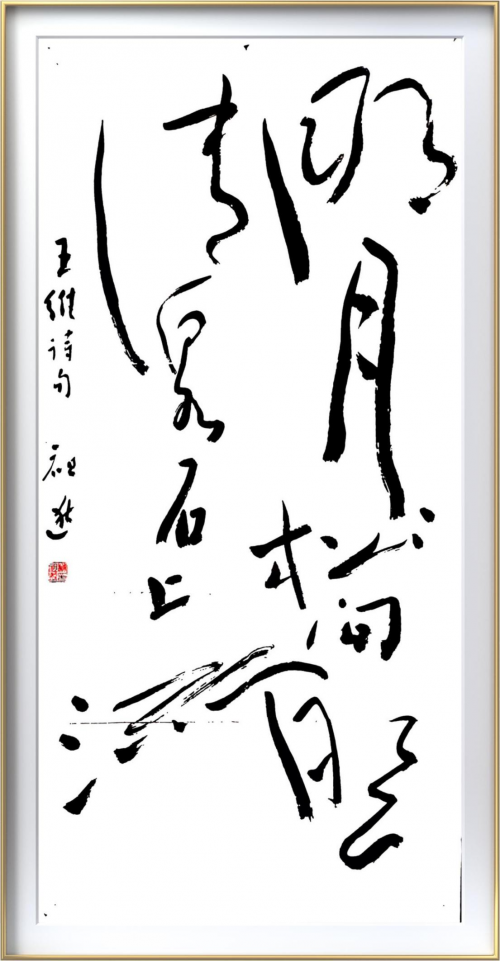 明月松间照
清泉石上流
王維诗句 祖逖